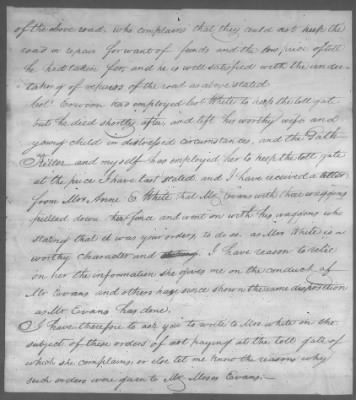 of the above road, who complains that they could not keep the
road in repair for want of funds and the low price of toll
he had taken for, and he is well satisfied with the under-
taking of repairs of the road as above stated
Col. has employed Col. White to keep the toll gate
but he died shortly after and left his worthy wife and
young child in distressed circumstances, and the
and myself has employed her to keep the toll gate
at the price I have last stated and I have received a letter
from Mrs. Anne E. White that Mr. Evans with three waggons
pulled down her fence and went on with his waggons who
stating that it was your orders, to do so. as Mrs White is a
worthy character and I have reason to relie
on her the information she gives me on the conduct of
Mr Evans and others have since shown the same disposition
as Mr Evans has done.
I have therefore to ask you to write to Mrs White on the
subject of these orders of not paying at the toll gate of
which she complains, or else let me know the reasons why
such orders were given to Mr Moses Evans.—